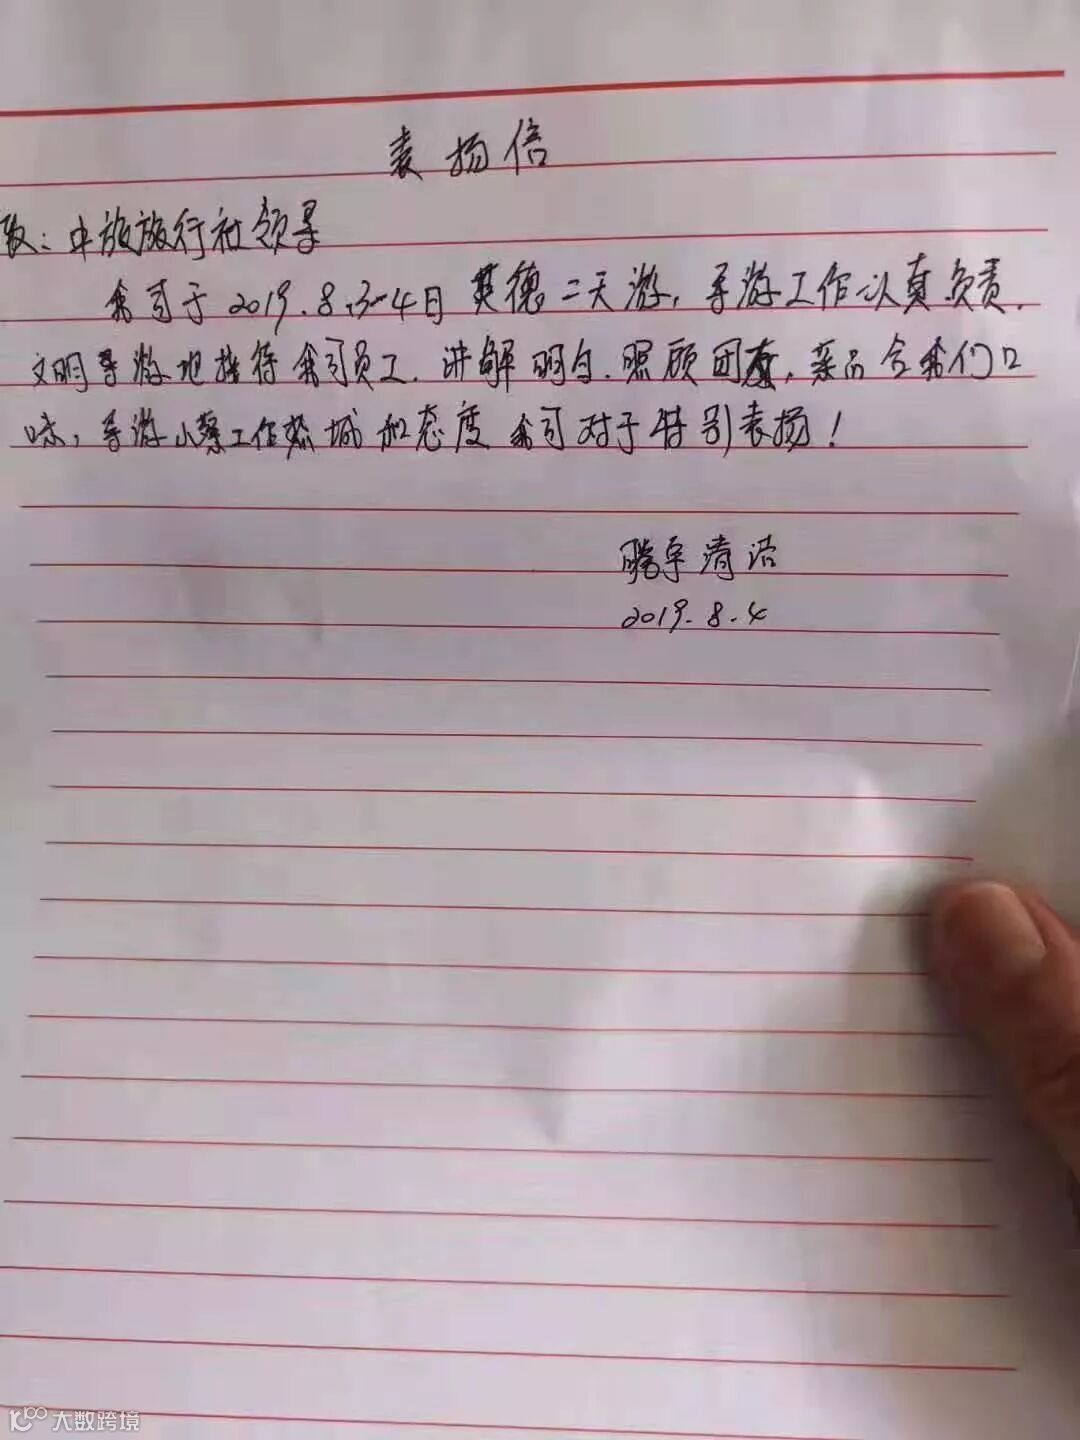 表扬信
致：中旅旅行社领导
我司于2019.8.3-4日英德二天游，导游工作认真负责.
文明导游地接待我司员工.讲解明白.照顾团友，菜品合我们口
味，导游小蔡工作热城和态度我司对于特别表扬！
腾宇清洁
2019.8.4
大数跨境